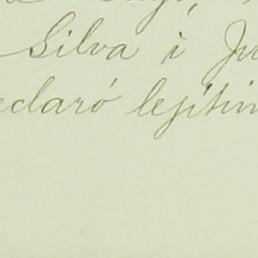 Silva i Ju
eclaró lejítim